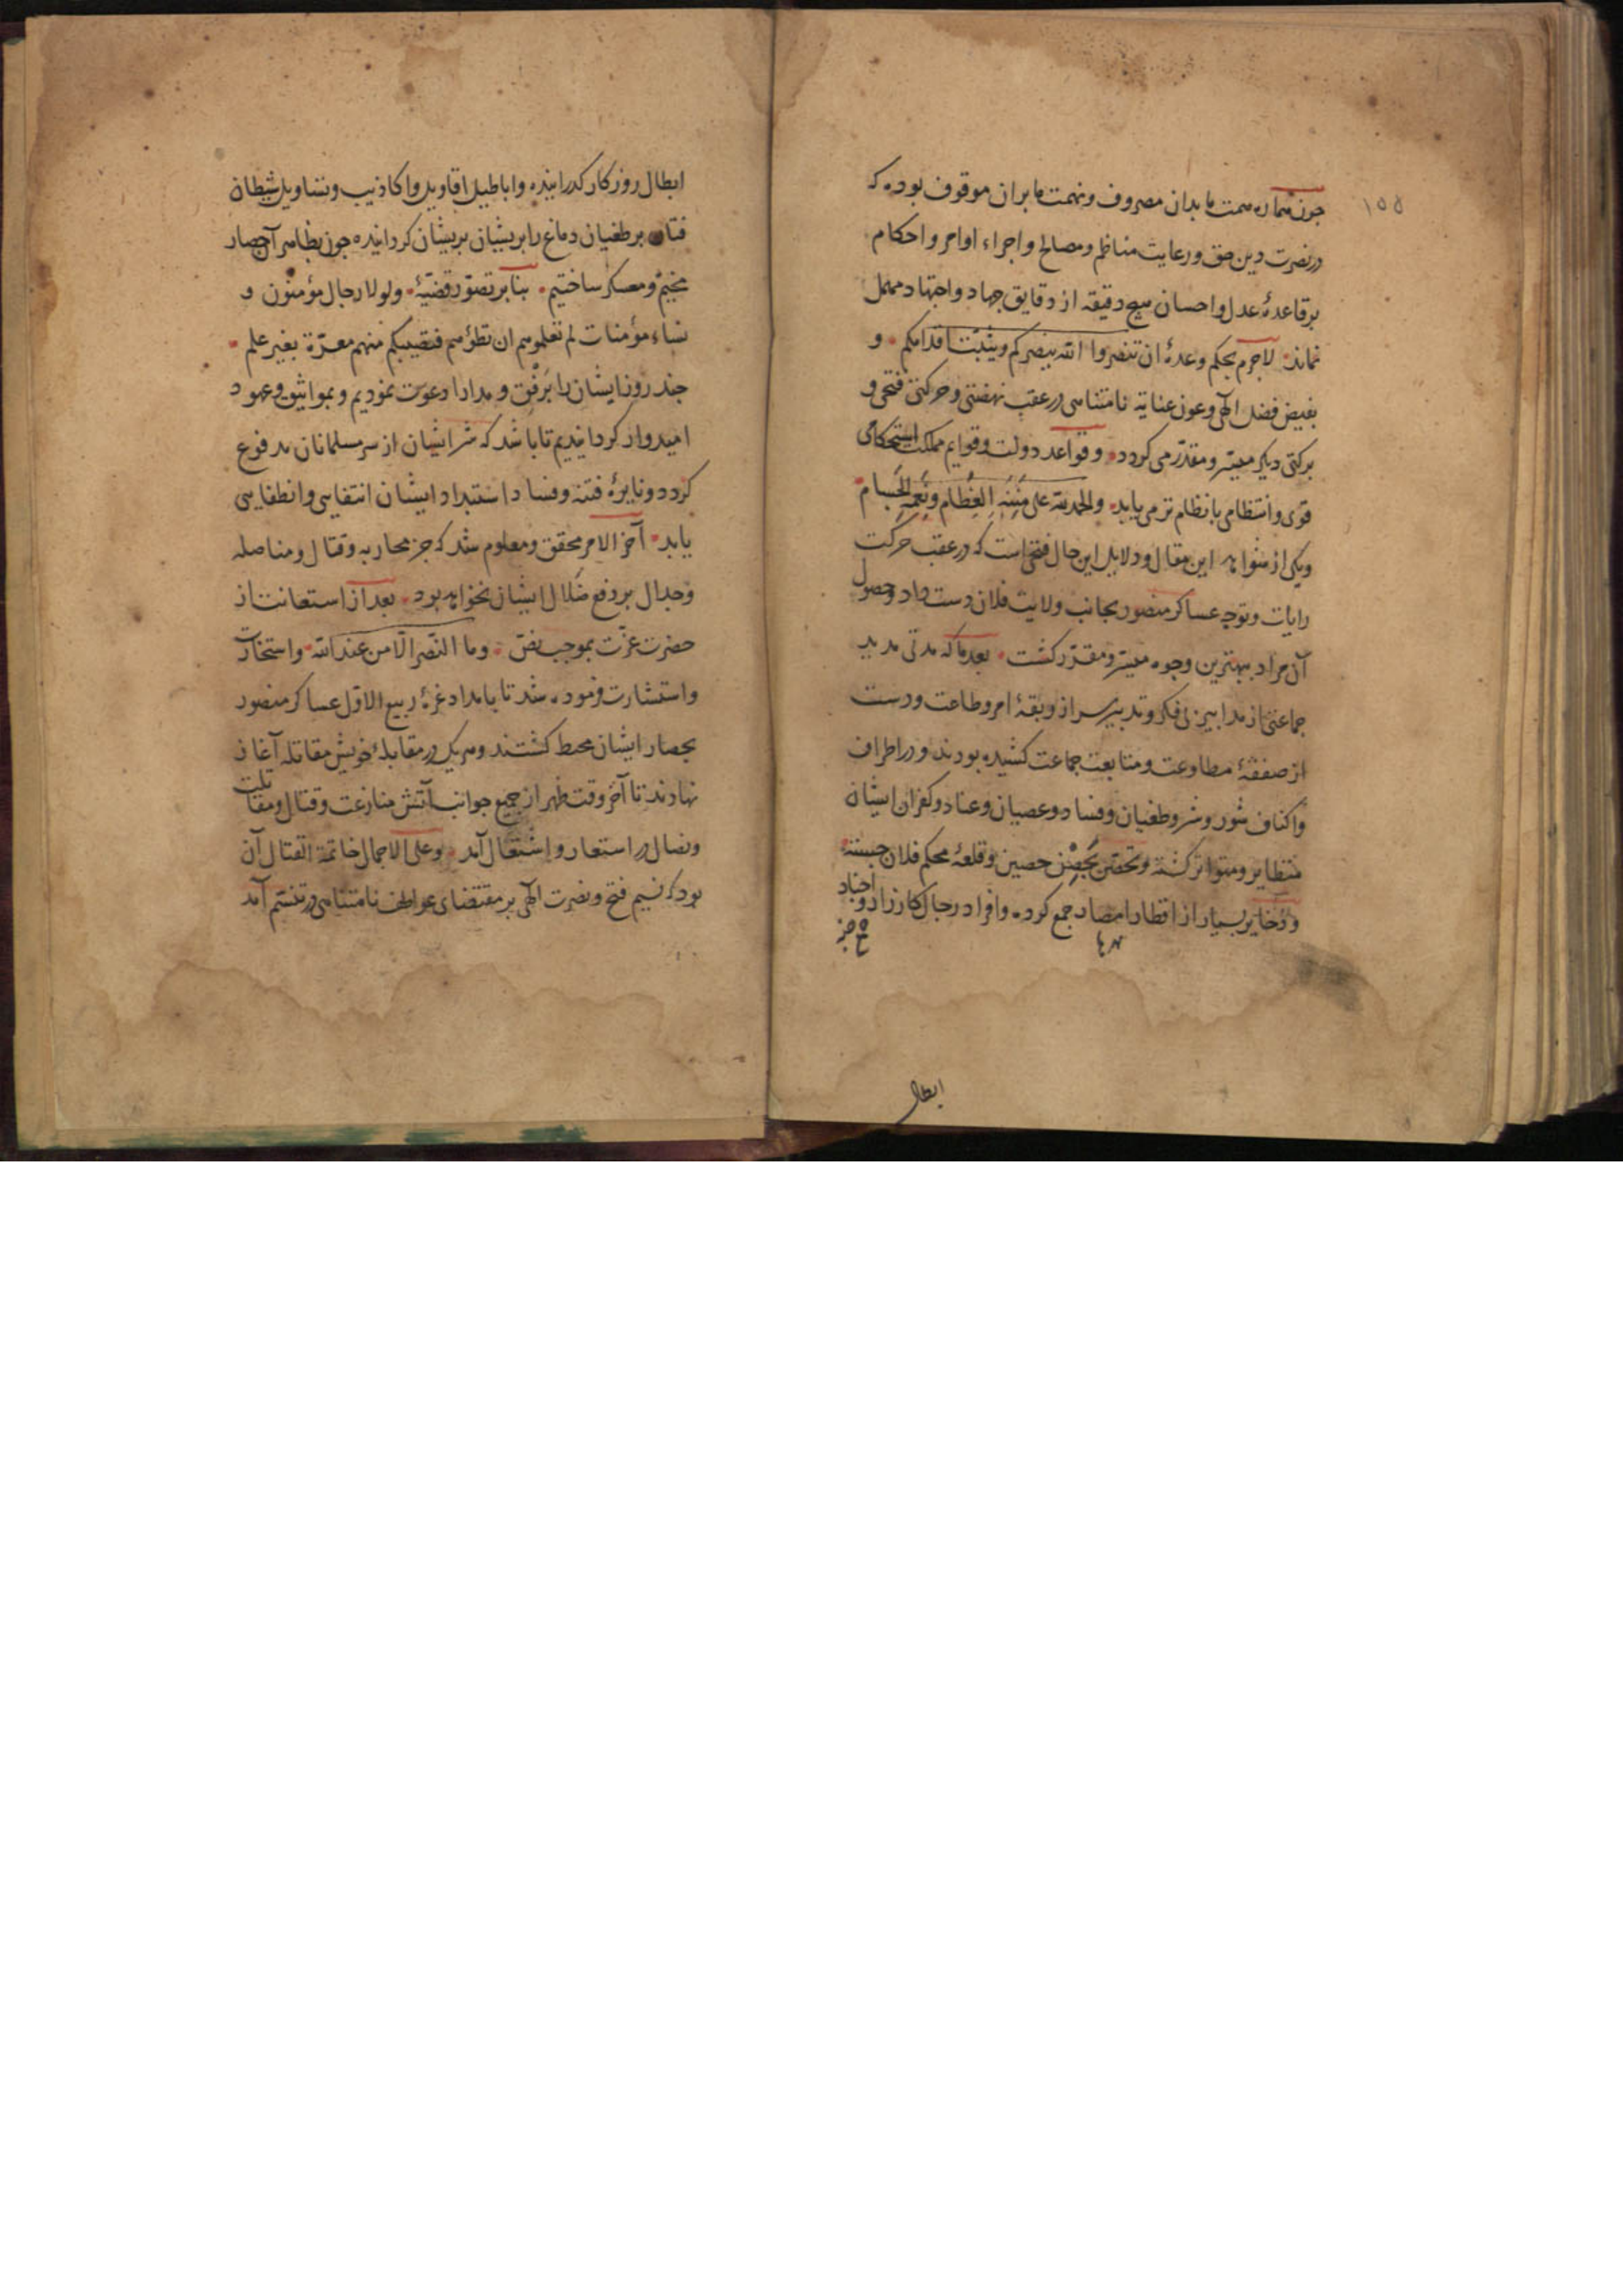 ۱۵۵
جون هماره همت ما بدان مصروف و نهمت ما بران موقوف بوده كه
در نصرت دين حق و رعايت مناظم و مصالح و اجراء اوامر و احكام
بر قاعدهٔ عدل و احسان هيج دقيقه از دقايق جهاد و اجتهاد مهمل
نماند لاجرم بحكم وعدهٔ ان تنصروا الله ينصركم ويثبت اقدامكم و
بفيض فضل الهى و عون عنايه نامتناهى در عقب نهضتى و حركتى فتحى و
بركتى ديكر ميسر و مقدر مى كردد و قواعد دولت و قوايم مملكت استحكامى
قوى و انتظامى با نظام ترمى يابد والحمد لله على مننه العظام ونعمه الجسام
و يكى از شواهد اين مقال و دلايل اين حال فتحى است كه در عقب حركت
رايات و توجه عساكر منصور بجانب ولايت فلان دست داد و حصول
آن مراد ببهترين وجوه ميسر و مقدر كشت بعد ما كه مدتى مديد
جماعتى از مدابير بى فكر و تدبير سر از ربقهٔ امر و طاعت و دست
از صفقهٔ مطاوعت و متابعت جماعت كشيده بودند و در اطراف
و اكناف شور و شر و طغيان و فساد و عصيان و عناد و كفران ايشان
متظاير و متواتر كشته و تحصن بحصن حصين و قلعهٔ محكم فلان جسته
و ذخاير بسيار از اقطار امصار جمع كرده و افراد رجال كارزار و اجناد
ابطال
ابطال روزكار كذرانيده و اباطيل اقاويل و اكاذيب و تساويل شيطان
فتان بر طغيان دماغ را بريشان بريشان كردانيده جون بظاهر آن حصار
مخيم و معسكر ساختيم بنا بر تصور قضيهٔ ولولا رجال مؤمنون و
نساء مؤمنات لم تعلموهم ان تطؤهم فتصيبكم منهم معرة بغير علم
جند روز ايشان را برفق و مدارا دعوت نموديم و بمواثيق و عهود
اميدوار كردانيديم تا باشد كه شر ايشان از سر مسلمانان مدفوع
كردد و نايرهٔ فتنه و فساد و استبداد ايشان انتفايى و انطفايى
يابد آخر الامر محقق و معلوم شد كه جز محاربه و قتال و مناصله
و جدال بر دفع ضلال ايشان نخواهد بود بعد از استعانت از
حضرت عزت بموجب نص وما النصر الا من عند الله و استخارت
و استشارت فرموده شد تا بامداد غرهٔ ربيع الاول عساكر منصور
بحصار ايشان محيط كشتند و هر يك در مقابلهٔ خويش مقاتله آغاز
نهادند تا آخر وقت ظهر از جميع جوانب آتش منازعت و قتال و مقاتلت
و نضال در استعار و اشتعال آمد و على الاجمال خاتمة القتال آن
بود كه نسيم فتح و نصرت الهى بر مقتضاى عواطف نامتناهى در تنسم آمد